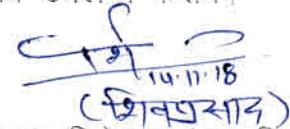 14.11.18
(शिवप्रसाद)